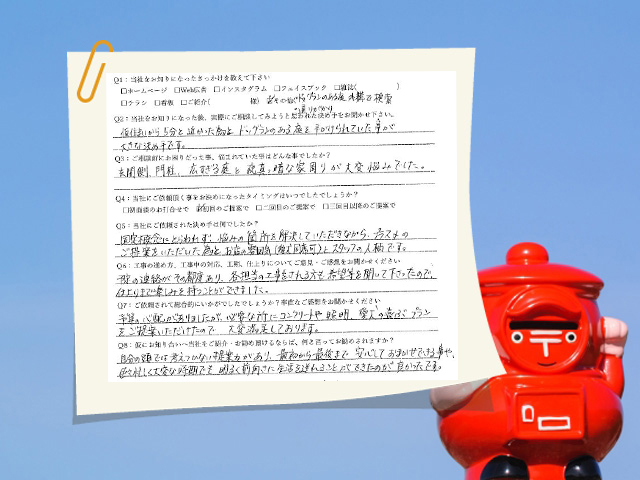 Q1：当社をお知りになったきっかけを教えて下さい
□ホームページ □Web広告 □インスタグラム □フェイスブック □雑誌( )
□チラシ □看板 □ご紹介( 様) のある庭 で検索
通りがかり
Q2：当社をお知りになった後、実際にご相談してみようと思われた決め手をお聞かせ下さい。
住まいから5分と近かった為と ドッグランのある庭を手がけられていた事が
大きな決め手です。
Q3：ご相談前にお困りだった事、悩まれていた事はどんな事でしたか？
玄関側、門柱、広すぎる庭と 殺風景な家周りが大変悩みでした。
Q4：当社にご依頼頂く事をお決めになったタイミングはいつでしたでしょうか？
□初面談のお打合せで 初回のご提案で □二回目のご提案で □三回目以降のご提案で
Q5：当社にご依頼された決め手は何でしたか？
固定概念にとらわれず、悩みの箇所を解決していただきながら、プラスαの
ご提案をいただいた為と、お店の雰囲気(愛犬同席可)とスタッフの人柄です。
Q6：工事の進め方、工事中の対応、工期、仕上りについてご意見・ご感想をお聞かせください
の連絡がその都度あり、各担当の工事をされる方も希望等を聞いて下さったので、
仕上りまで楽しみを持つことができました。
Q7：ご依頼されて総合的にいかがでしたでしょうか？率直なご感想をお聞かせください
予算の心配がありましたが、必要な所にコンクリートや照明、愛犬の喜ぶプラン
をご提案いただけたので 大変満足しております。
Q8：仮にお知り合いへ当社をご紹介・お勧め頂けるならば、何と言ってお勧めされますか？
自分の頭では考えつかない提案力があり、最初から最後まで安心しておまかせできる事や、
忙しく大変な時期でも 明るく前向きに生活を送れることができたのが良かったです。